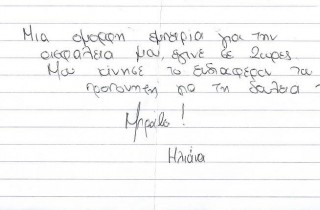 Μια όμορφη εμπειρία για την
ασφάλεια μου, έγινε σε 2 ώρες.
Μου κίνησε το ενδιαφέρον το
για τη δουλεια
Μπράβο!
Ηλιάνα